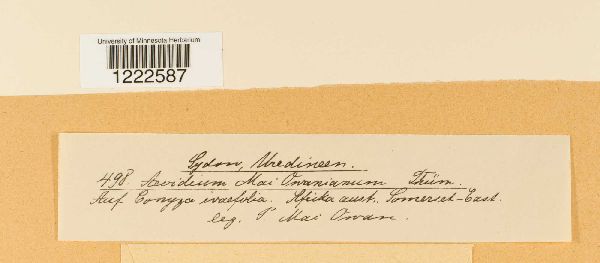 University of Minnesota Herbarium
1222587
Sydow, Uredineen.
498. Aecidium Mac Owanianum Thüm.
Auf Conyza ivaefolia. Afrika aust. Somerset-East.
leg. P. Mac Owan.